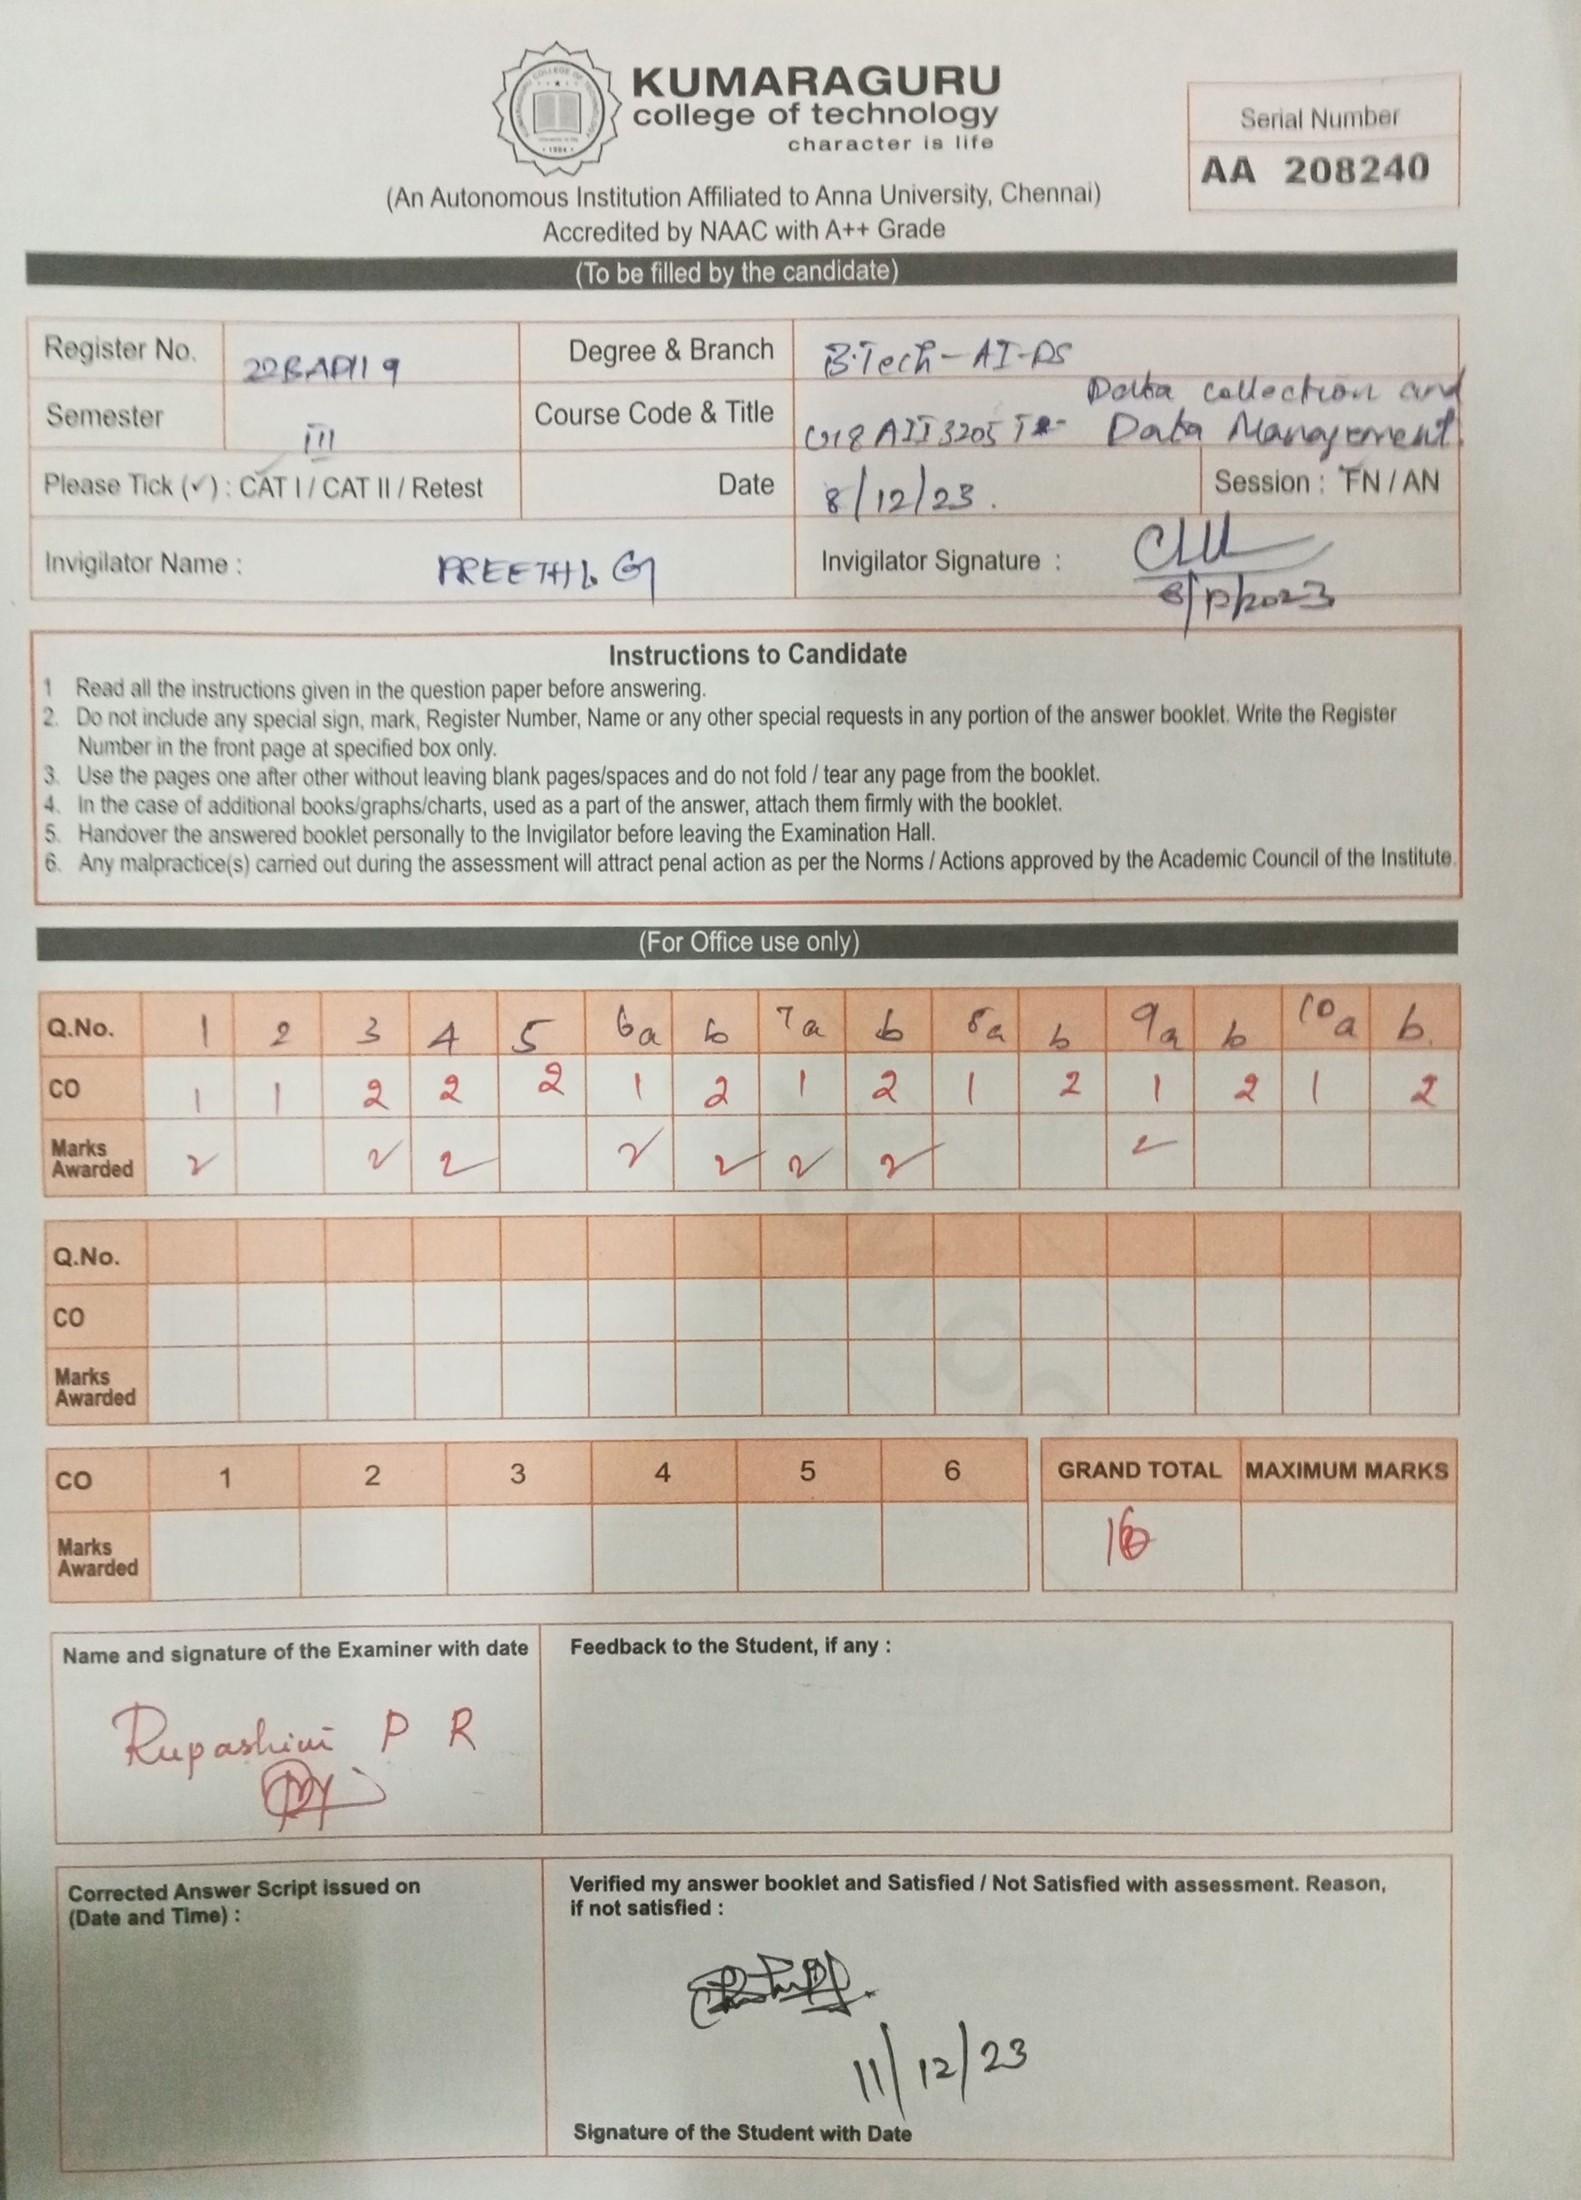 KUMARAGURU
college of technology
character is life
(An Autonomous Institution Affiliated to Anna University, Chennai)
Accredited by NAAC with A++ Grade
Serial Number
AA 208240
(To be filled by the candidate)
Register No. 22BAD119 Degree & Branch B.Tech-AI-DS
Semester III Course Code & Title U18AII3205 Data collection and
Data Management
Please Tick (✓) : CAT I / CAT II / Retest Date 8/12/23. Session : FN / AN
Invigilator Name : PREETHI. G Invigilator Signature :
8/12/2023
Instructions to Candidate
1 Read all the instructions given in the question paper before answering.
2. Do not include any special sign, mark, Register Number, Name or any other special requests in any portion of the answer booklet. Write the Register
Number in the front page at specified box only.
3. Use the pages one after other without leaving blank pages/spaces and do not fold / tear any page from the booklet.
4. In the case of additional books/graphs/charts, used as a part of the answer, attach them firmly with the booklet.
5. Handover the answered booklet personally to the Invigilator before leaving the Examination Hall.
6. Any malpractice(s) carried out during the assessment will attract penal action as per the Norms / Actions approved by the Academic Council of the Institute.
(For Office use only)
Q.No. 1 2 3 4 5 6a b 7a b 8a b 9a b 10a b.
CO 1 1 2 2 2 1 2 1 2 1 2 1 2 1 2
Marks
Awarded 2 2 2 2 2 2 2 2
Q.No.
CO
Marks
Awarded
CO 1 2 3 4 5 6 GRAND TOTAL MAXIMUM MARKS
Marks
Awarded 16
Name and signature of the Examiner with date
Rupashini P R
Feedback to the Student, if any :
Corrected Answer Script issued on
(Date and Time) :
Verified my answer booklet and Satisfied / Not Satisfied with assessment. Reason,
if not satisfied :
11/12/23
Signature of the Student with Date